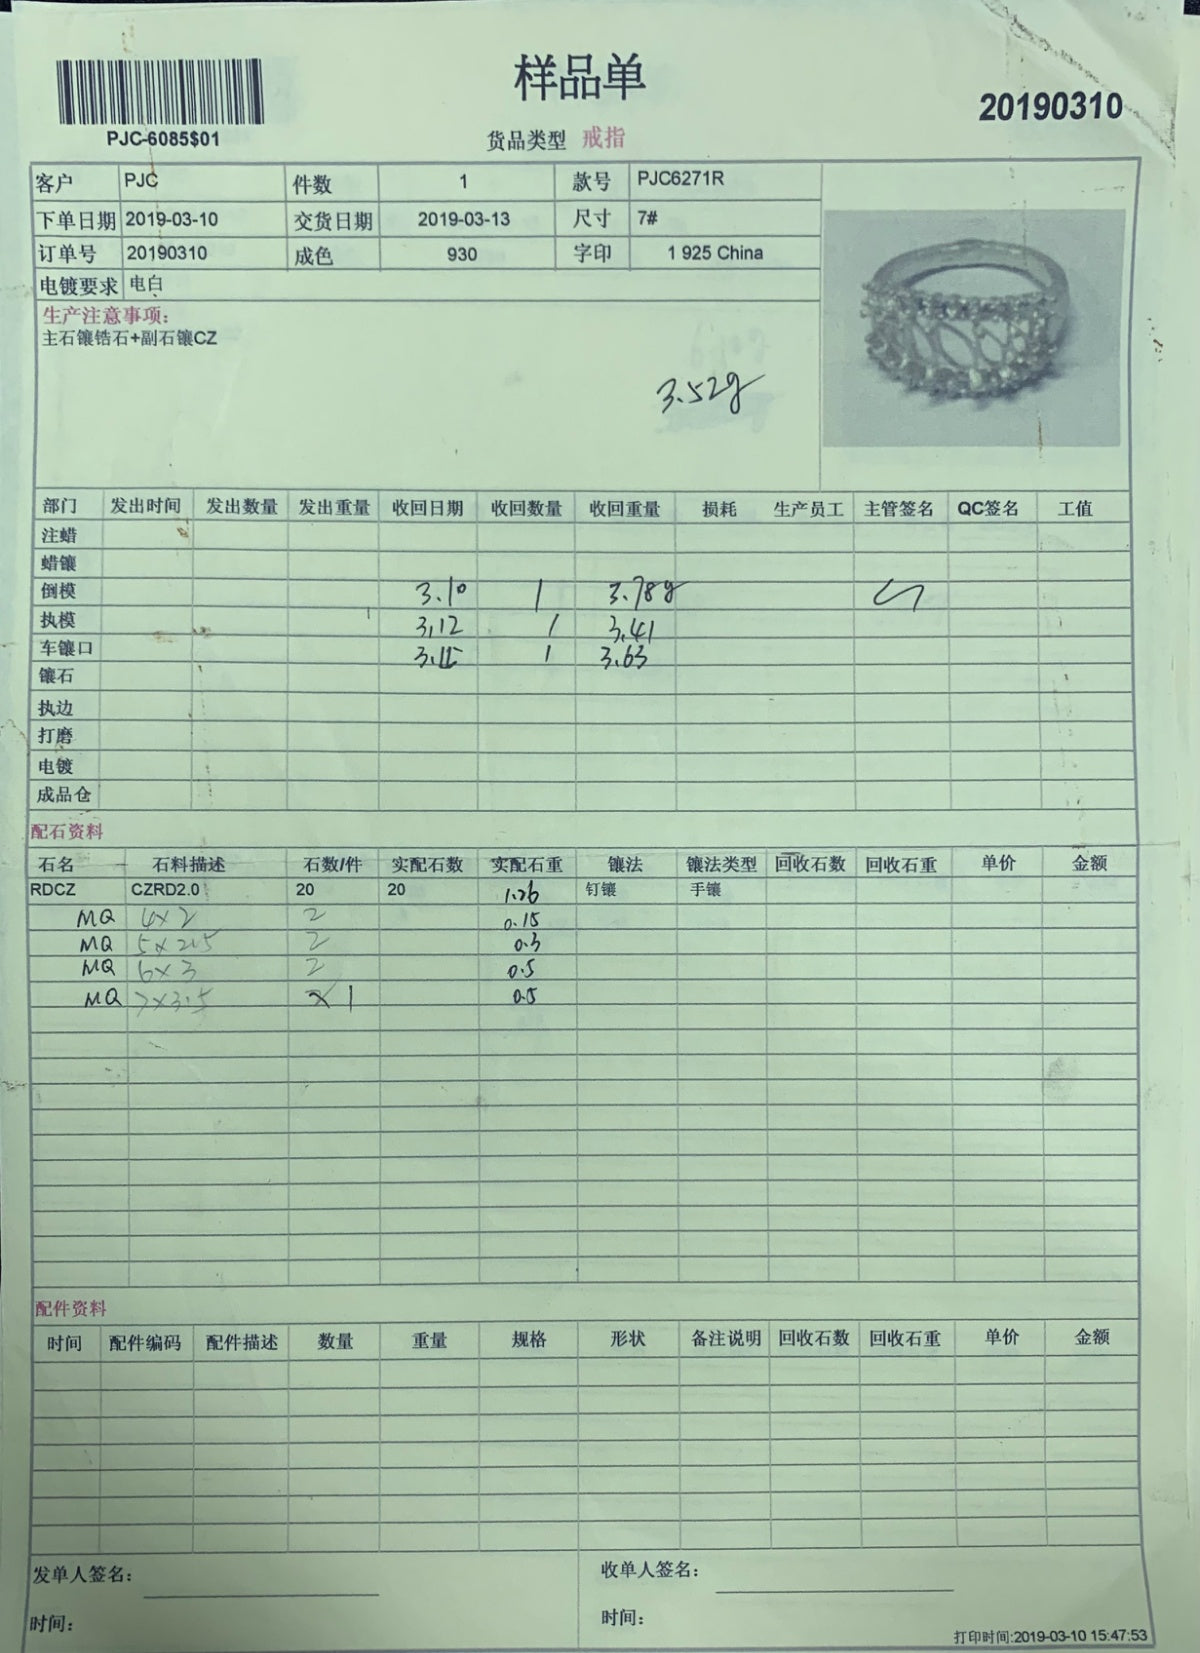 样品单
20190310
PJC-6085$01
货品类型 戒指
客户 PJC 件数 1 款号 PJC6271R
下单日期 2019-03-10 交货日期 2019-03-13 尺寸 7#
订单号 20190310 成色 930 字印 1 925 China
电镀要求 电白
生产注意事项:
主石镶锆石+副石镶CZ
3.52g
部门 发出时间 发出数量 发出重量 收回日期 收回数量 收回重量 损耗 生产员工 主管签名 QC签名 工值
注蜡
蜡镶
倒模 3.10 1 3.78g
执模 3.12 1 3.41
车镶口 3.15 1 3.63
镶石
执边
打磨
电镀
成品仓
配石资料
石名 石料描述 石数/件 实配石数 实配石重 镶法 镶法类型 回收石数 回收石重 单价 金额
RDCZ CZRD2.0 20 20 1.26 钉镶 手镶
MQ 4×2 2 0.15
MQ 5×2.5 2 0.3
MQ 6×3 2 0.5
MQ 7×3.5 1 0.5
配件资料
时间 配件编码 配件描述 数量 重量 规格 形状 备注说明 回收石数 回收石重 单价 金额
发单人签名: 收单人签名:
时间: 时间:
打印时间:2019-03-10 15:47:53